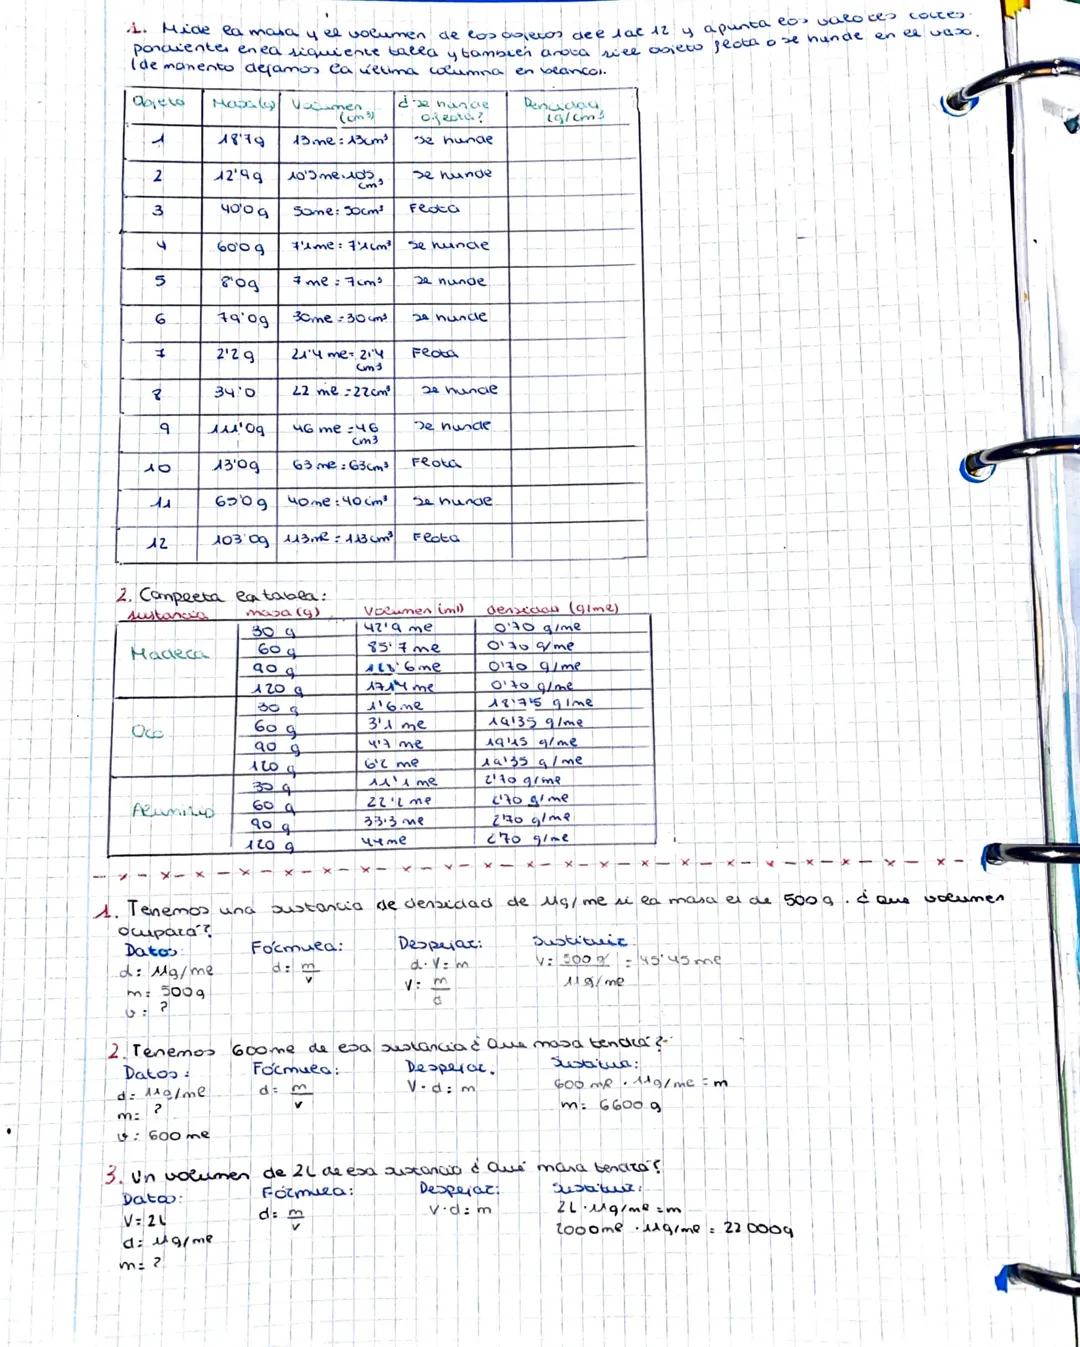 1. Mide la masa y el volumen de los objetos del 1 al 12 y apunta los valores corres-
pondientes en la siguiente tabla y también anota si el objeto flota o se hunde en el vaso.
(de momento dejamos la última columna en blanco).
Objeto Masa(g) Volumen (cm³) ¿se hunde o flota? Densidad (g/cm³
1 18'7g 13ml = 13cm³ se hunde
2 12'9g 10'5ml=10'5 cm³ se hunde
3 40'0g 50ml = 50cm³ Flota
4 60'0g 7'1ml = 7'1cm³ se hunde
5 8'0g 7ml = 7cm³ se hunde
6 79'0g 30ml = 30cm³ se hunde
7 2'2g 21'4 ml = 21'4 cm³ Flota
8 34'0 22 ml = 22cm³ se hunde
9 111'0g 46 ml = 46 cm3 se hunde
10 13'0g 63 ml = 63cm³ Flota
11 65'0g 40ml = 40cm³ se hunde
12 103'0g 113ml = 113cm³ Flota
2. Completa la tabla:
sustancia masa (g) Volumen (ml) densidad (g/ml)
Madera 30 g 42'9 ml 0'70 g/ml
60 g 85'7 ml 0'70 g/ml
90 g 128'6 ml 0'70 g/ml
120 g 171'4 ml 0'70 g/ml
Oro 30 g 1'6 ml 18'75 g/ml
60 g 3'1 ml 19'35 g/ml
90 g 4'7 ml 19'15 g/ml
120 g 6'2 ml 19'35 g/ml
Aluminio 30 g 11'1 ml 2'70 g/ml
60 g 22'2 ml 2'70 g/ml
90 g 33'3 ml 2'70 g/ml
120 g 44 ml 2'70 g/ml
1. Tenemos una sustancia de densidad de 11g/ml si la masa es de 500g. ¿Que volumen
ocupará?
Datos: Fórmula: Despejar: Sustituir:
d = 11g/ml d = m/v d·V = m V = 500g / 11g/ml = 45'45ml
m = 500g V = m/d
v = ?
2. Tenemos 600ml de esa sustancia ¿Que masa tendrá?
Datos: Fórmula: Despejar. Sustitua:
d = 11g/ml d = m/v V·d = m 600 ml · 11g/ml = m
m = ? m = 6600 g
v = 600 ml
3. Un volumen de 2L de esa sustancia ¿Qué masa tendrá?
Datos: Fórmula: Despejar: Sustituir:
V = 2L d = m/v V·d = m 2L·11g/ml = m
d = 11g/ml 2000ml · 11g/ml = 22000g
m = ?